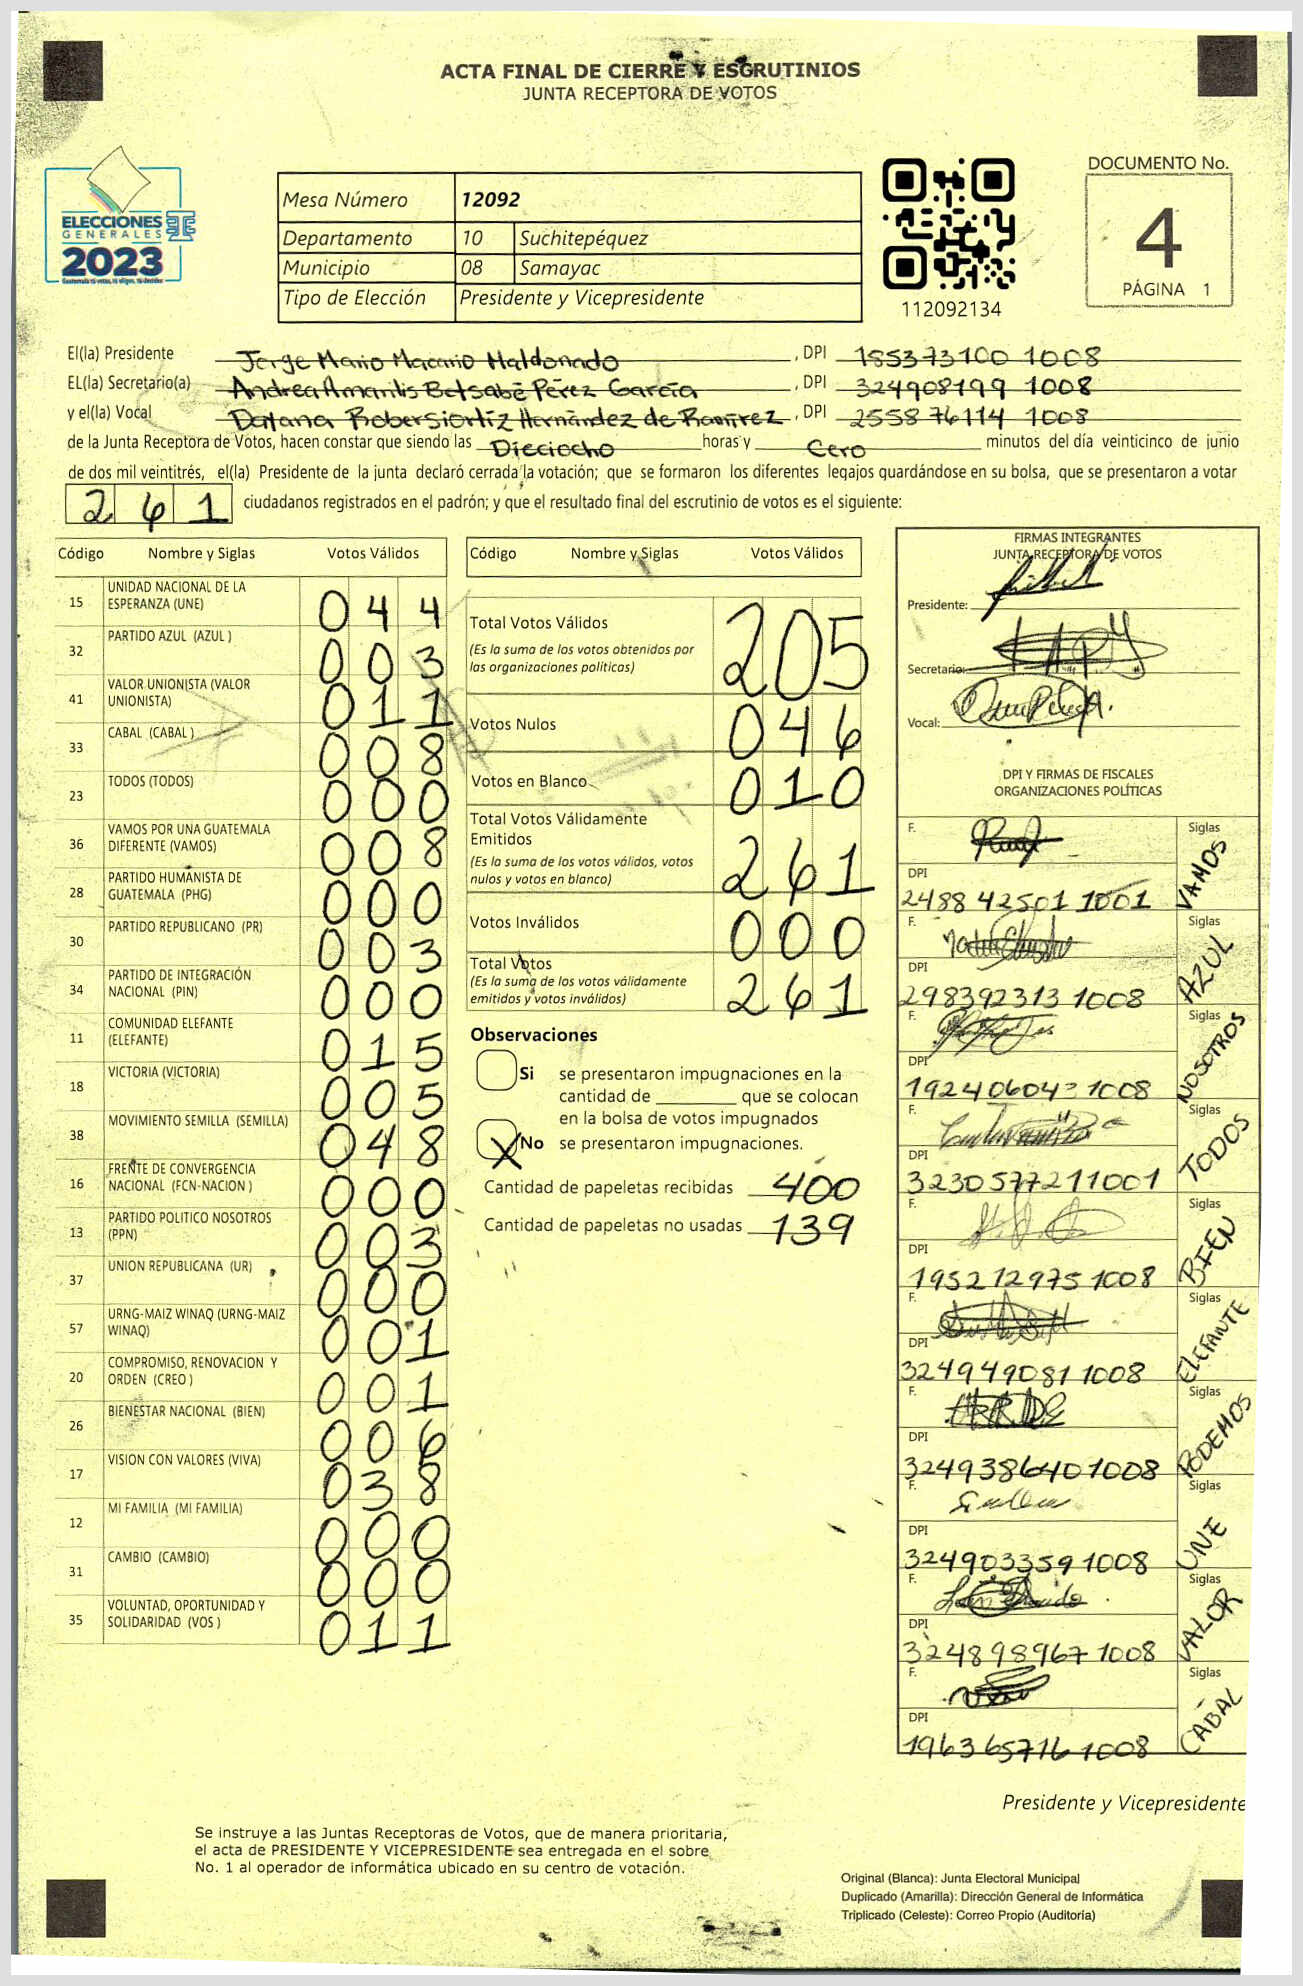 ACTA FINAL DE CIERRE Y ESCRUTINIOS
JUNTA RECEPTORA DE VOTOS
ELECCIONES
GENERALES
2023
Mesa Número 12092
Departamento 10 Suchitepéquez
Municipio 08 Samayac
Tipo de Elección Presidente y Vicepresidente
112092134
DOCUMENTO No.
4
PÁGINA 1
El(la) Presidente Jorge Mario Macario Maldonado, DPI 185373100 1008
EL(la) Secretario(a) Andrea Amarilis Betsabé Pérez García, DPI 324908199 1008
y el(la) Vocal Hernández de Ramírez, DPI 2558 76114 1008
de la Junta Receptora de Votos, hacen constar que siendo las Dieciocho horas y Cero minutos del día veinticinco de junio
de dos mil veintitrés, el(la) Presidente de la junta declaró cerrada la votación; que se formaron los diferentes legajos guardándose en su bolsa, que se presentaron a votar
261 ciudadanos registrados en el padrón; y que el resultado final del escrutinio de votos es el siguiente:
Código Nombre y Siglas Votos Válidos
15 UNIDAD NACIONAL DE LA ESPERANZA (UNE) 044
32 PARTIDO AZUL (AZUL ) 003
41 VALOR UNIONISTA (VALOR UNIONISTA) 011
33 CABAL (CABAL ) 008
23 TODOS (TODOS) 000
36 VAMOS POR UNA GUATEMALA DIFERENTE (VAMOS) 008
28 PARTIDO HUMANISTA DE GUATEMALA (PHG) 000
30 PARTIDO REPUBLICANO (PR) 003
34 PARTIDO DE INTEGRACIÓN NACIONAL (PIN) 000
11 COMUNIDAD ELEFANTE (ELEFANTE) 015
18 VICTORIA (VICTORIA) 005
38 MOVIMIENTO SEMILLA (SEMILLA) 048
16 FRENTE DE CONVERGENCIA NACIONAL (FCN-NACION ) 000
13 PARTIDO POLITICO NOSOTROS (PPN) 003
37 UNION REPUBLICANA (UR) 000
57 URNG-MAIZ WINAQ (URNG-MAIZ WINAQ) 001
20 COMPROMISO, RENOVACION Y ORDEN (CREO ) 001
26 BIENESTAR NACIONAL (BIEN) 006
17 VISION CON VALORES (VIVA) 038
12 MI FAMILIA (MI FAMILIA) 000
31 CAMBIO (CAMBIO) 000
35 VOLUNTAD, OPORTUNIDAD Y SOLIDARIDAD (VOS ) 011
Código Nombre y Siglas Votos Válidos
Total Votos Válidos 205
(Es la suma de los votos obtenidos por
las organizaciones políticas)
Votos Nulos 046
Votos en Blanco 010
Total Votos Válidamente
Emitidos 261
(Es la suma de los votos válidos, votos
nulos y votos en blanco)
Votos Inválidos 000
Total Votos 261
(Es la suma de los votos válidamente
emitidos y votos inválidos)
Observaciones
Si se presentaron impugnaciones en la
cantidad de ________ que se colocan
en la bolsa de votos impugnados
X No se presentaron impugnaciones.
Cantidad de papeletas recibidas 400
Cantidad de papeletas no usadas 139
FIRMAS INTEGRANTES
JUNTA RECEPTORA DE VOTOS
Presidente:
Secretario:
Vocal:
DPI Y FIRMAS DE FISCALES
ORGANIZACIONES POLÍTICAS
F. Siglas VAMOS
DPI
2488 42501 1001
F. Siglas AZUL
DPI
298392313 1008
F. Siglas NOSOTROS
DPI
192406043 1008
F. Siglas TODOS
DPI
3230577211001
F. Siglas BIEN
DPI
195212975 1008
F. Siglas ELEFANTE
DPI
324949081 1008
F. Siglas PODEMOS
DPI
324938640 1008
F. Siglas UNE
DPI
324903359 1008
F. Siglas VALOR
DPI
324898967 1008
F. Siglas CABAL
DPI
196365716 1008
Presidente y Vicepresidente
Se instruye a las Juntas Receptoras de Votos, que de manera prioritaria,
el acta de PRESIDENTE Y VICEPRESIDENTE sea entregada en el sobre
No. 1 al operador de informática ubicado en su centro de votación.
Original (Blanca): Junta Electoral Municipal
Duplicado (Amarilla): Dirección General de Informática
Triplicado (Celeste): Correo Propio (Auditoría)